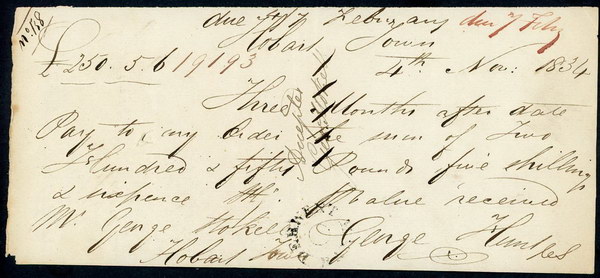 No 158
due 7 February due 7 Feby
Hobart Town
£250.5.6 19193 4th Nov: 1834
Three Months after date
Pay to my Order the sum of Two
Hundred & fifty Pounds five shillings
& sixpence Value received
Mr George Stokell George
Hobart Town
Accepted